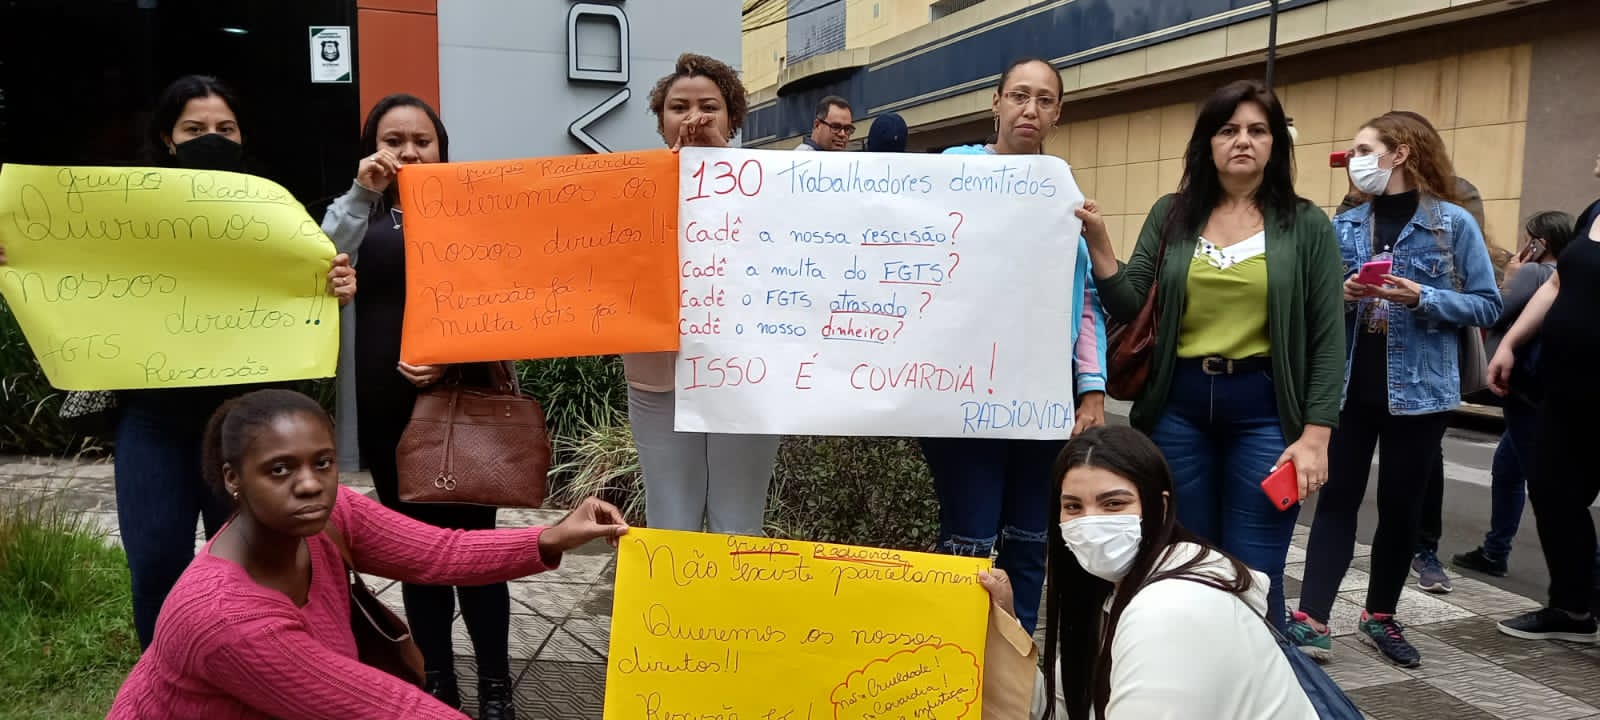 grupo Radiov
Queremos
nossos
direitos!!
FGTS
Rescisão
grupo Radiovida
Queremos os
nossos direitos!!
Rescisão já!
multa FGTS já!
130 Trabalhadores demitidos
Cadê a nossa rescisão?
Cadê a multa do FGTS?
Cadê o FGTS atrasado?
Cadê o nosso dinheiro?
ISSO É COVARDIA!
RADIOVIDA
grupo Radiovida
Não existe parcelament
Queremos os nossos
direitos!!
Rescisão já!
Crueldade!
Covardia!
injustiça!